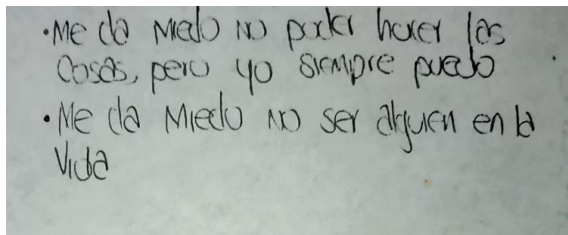 •Me da miedo no poder hacer las
Cosas, pero yo siempre puedo
•Me da miedo no ser alguien en la
Vida